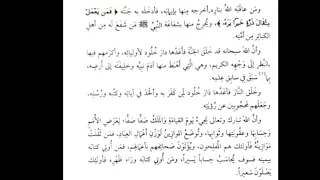 ومن عاقبه الله بناره أخرجه منها بإيمانه، فأدخله به جنته ﴿فمن يعمل
مثقال ذرة خيرا يره﴾، ويخرج منها بشفاعة النبي ﷺ من شفع له من أهل
الكبائر من أمته.
وأن الله سبحانه قد خلق الجنة فأعدها دار خلود لأوليائه، وأكرمهم فيها
بالنظر إلى وجهه الكريم، وهي التي أهبط منها آدم نبيه وخليفته إلى أرضه،
بما سبق في سابق علمه.
وخلق النار فأعدها دار خلود لمن كفر به وألحد في آياته وكتبه ورسله،
وجعلهم محجوبين عن رؤيته.
وأن الله تبارك وتعالى يجيء يوم القيامة والملك صفا صفا؛ لعرض الأمم
وحسابها وعقوبتها وثوابها، وتوضع الموازين لوزن أعمال العباد، فمن ثقلت
موازينه فأولئك هم المفلحون، ويؤتون صحائفهم بأعمالهم، فمن أوتي كتابه
بيمينه فسوف يحاسب حسابا يسيرا، ومن أوتي كتابه وراء ظهره فأولئك
يصلون سعيرا.